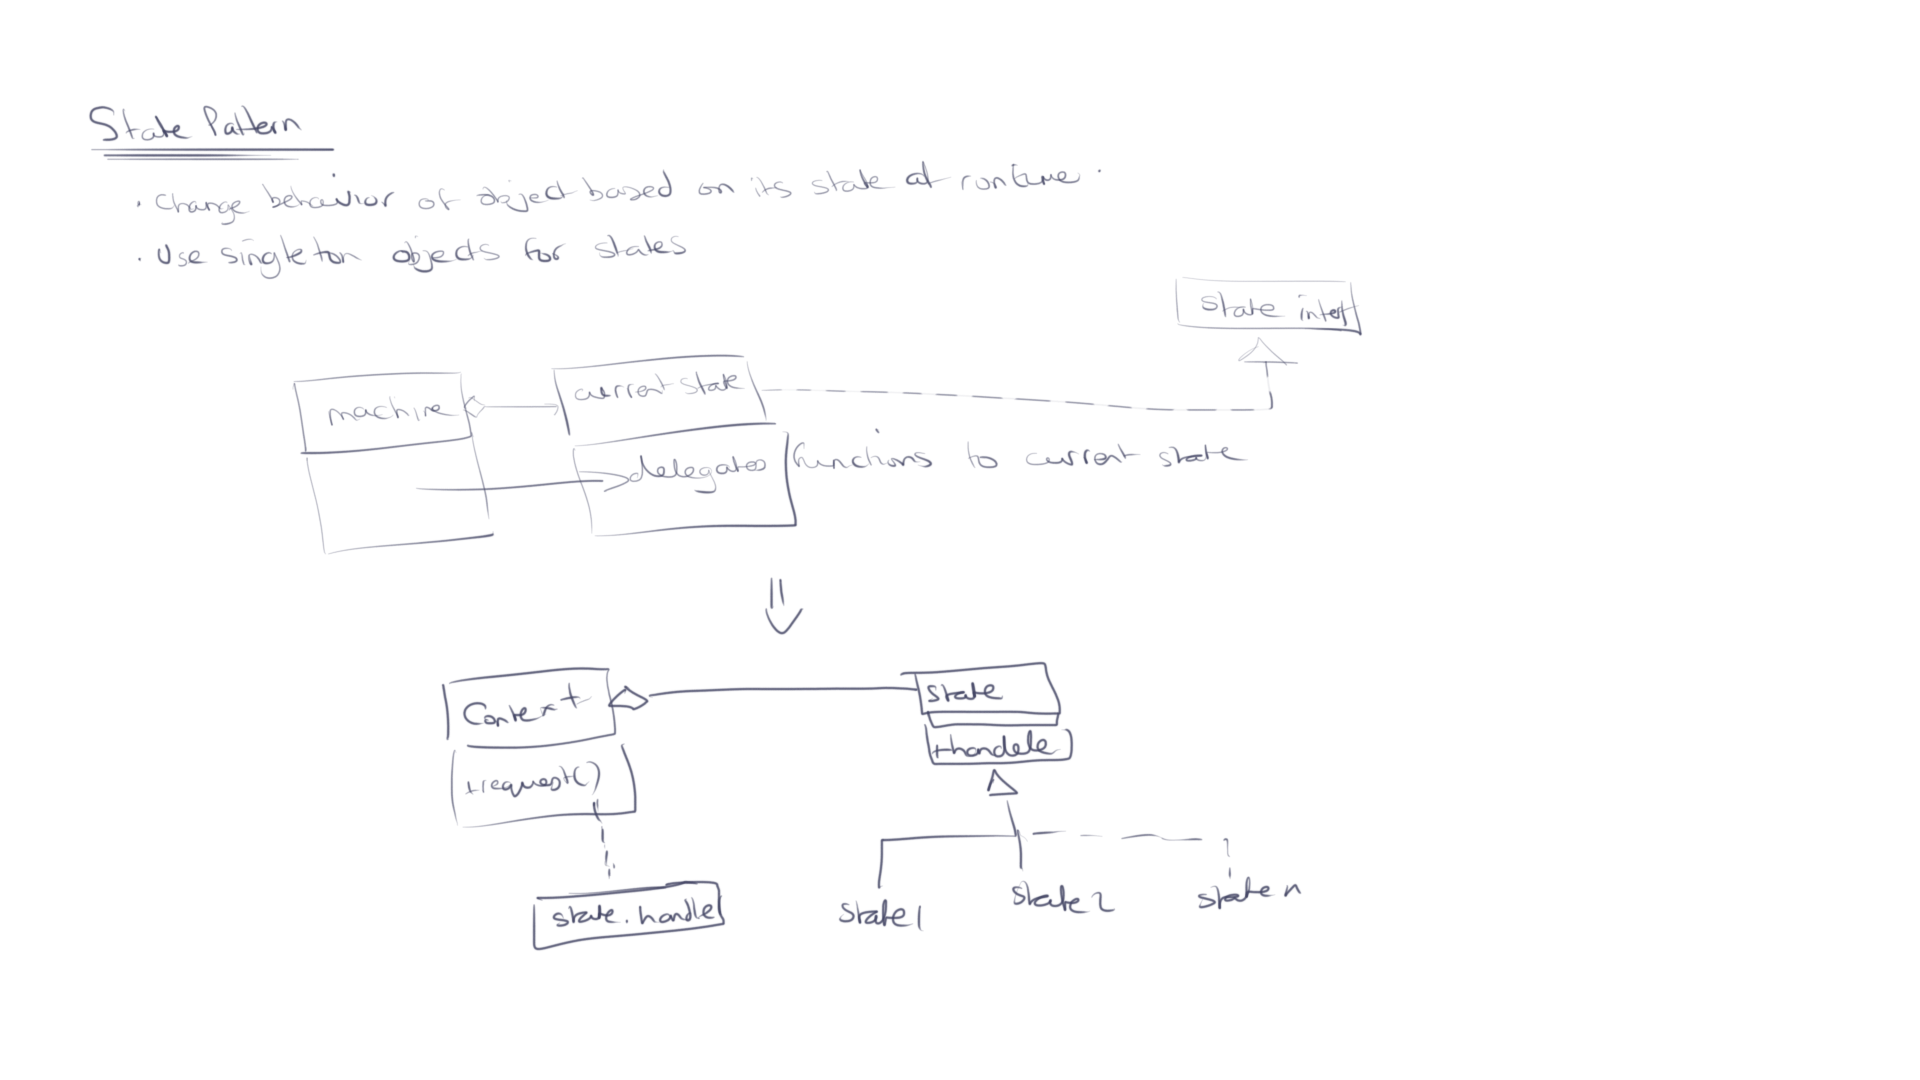 State Pattern
· Change behavior of object based on its state at runtime.
· Use singleton objects for states
state interf
machine
current state
delegates functions to current state
Context
state
+handele
+request()
state.handle
state1
state2
state n